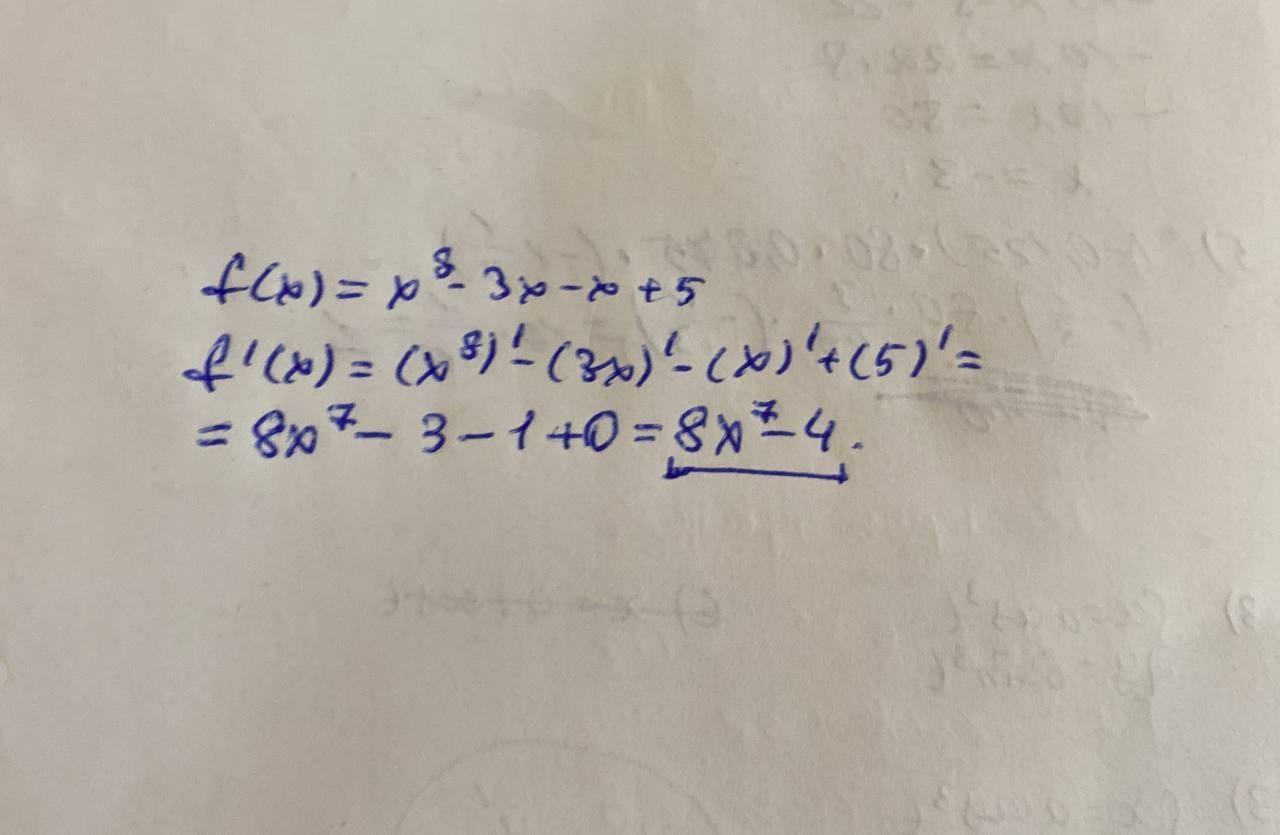 f(x) = x⁸ - 3x - x + 5
f'(x) = (x⁸)' - (3x)' - (x)' + (5)' =
= 8x⁷ - 3 - 1 + 0 = 8x⁷ - 4.